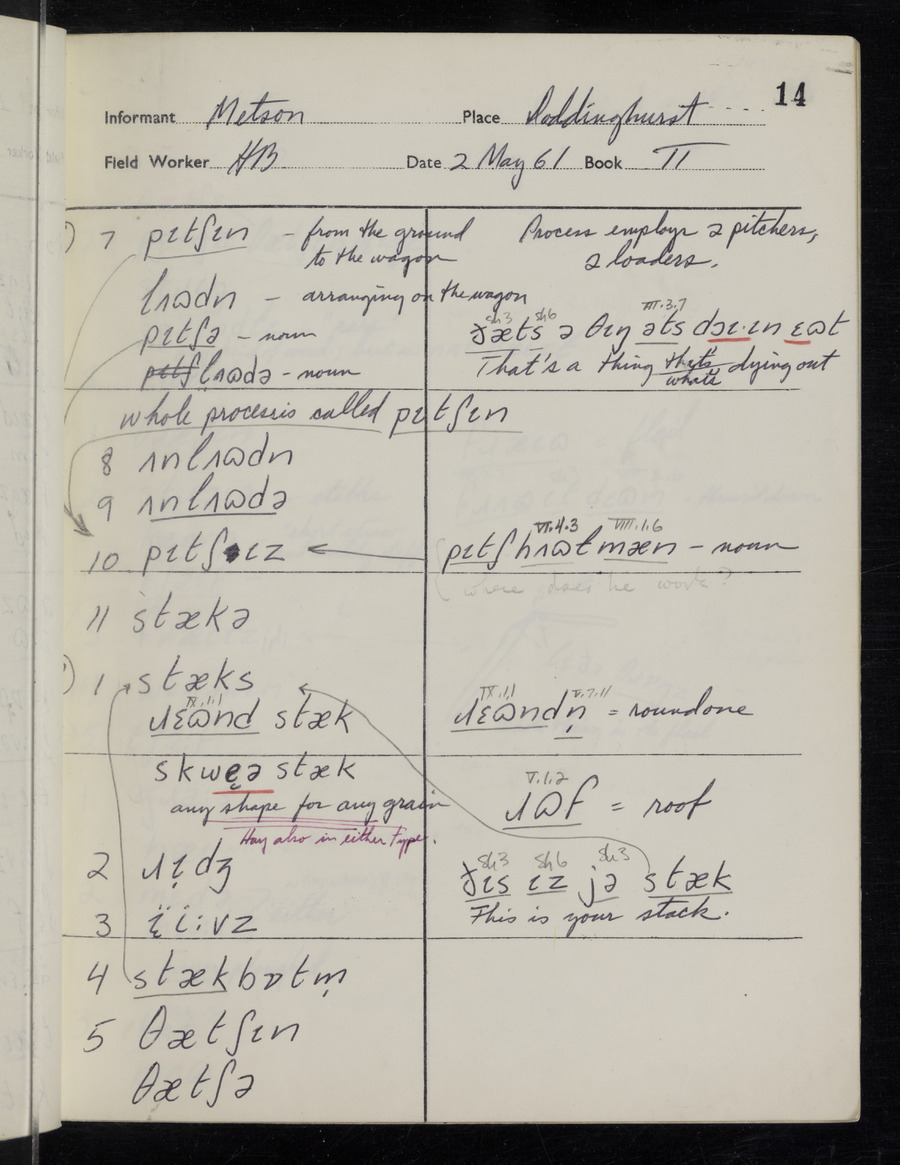 14
Informant Metson Place Doddinghurst
Field Worker HB Date 2 May 61 Book II
7 pɪtʃɪn – from the ground
to the wagon
lʌɷdn – arranging on the wagon
pɪtʃə – noun
lʌɷdə – noun
whole process is called pɪtʃɪn
8 ʌnlʌɷdn
9 ʌnlʌɷdə
10 pɪtʃɪz
11 stækə
1 stæks
IX.1.1
ɹɛɷnd stæk
skwɛ̜ə stæk
any shape for any grain
Hay also in either type.
2 ɹɪ̣dʒ
3 ï̜i:vz
4 stækbɒtm̩
5 θætʃɪn
θætʃə
Process employs 2 pitchers,
2 loaders.
sh3 sh6 III.3.7
ðæts ə θɪŋ əts dəɪ·ɪn ɛɷt
That's a thing that's dying out
what's
VI.4.3 VIII.1.6
pɪtʃhʌɷlmæn – noun
(where does he work?
IX.1.1 V.7.11
ɹɛɷndn̩ = roundone
V.1.2
ɹɷf = roof
sh3 sh6 sh3
ðɪs ɪz jə stæk
This is your stack.